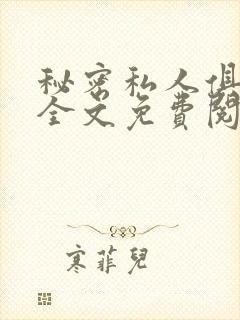 秘密私人俱
全文免費閱
寒菲兒